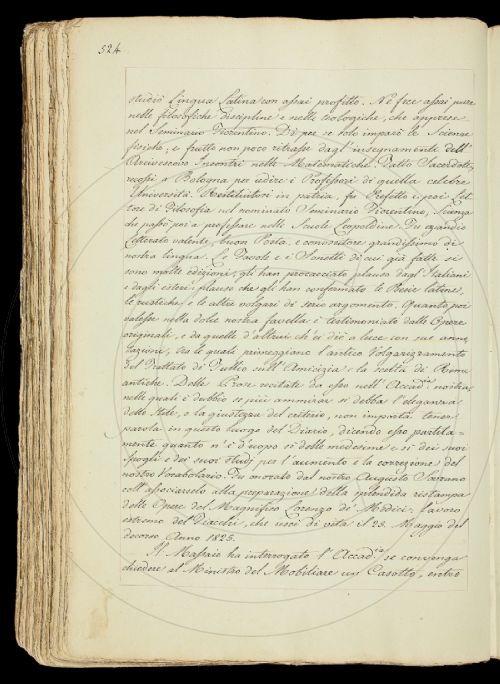 524.
studiò Lingua Latina con assai profitto. Nè fece assai pure
nelle filosofiche discipline e nelle teologiche, che apprese
nel Seminario Fiorentino. Di per se solo imparò le Scienze
fisiche, e frutto non poco ritrasse dagl'insegnamenti dell'
Arcivescovo Incontri nelle Matematiche. Fatto Sacerdote
recossi a Bologna per udire i Professori di quella celebre
Università. Restituitosi in patria, fu Prefetto e poi Let-
tore di Filosofia nel nominato Seminario Fiorentino, Scienza
che passò poi a professare nelle Scuole Leopoldine. Fu eziandio
Letterato valente, buon Poeta, e conoscitore grandissimo di
nostra lingua. Le Favole e i Sonetti di cui già fatte si
sono molte edizioni, gli han procacciato plauso dagl'Italiani
e dagli esteri: plauso che gli han confermato le Poesie latine,
le rustiche e le altre volgari di serio argomento. Quanto poi
valesse nella dolce nostra favella è testimoniato dalle Opere
originali, e da quelle d'altrui ch'ei diè a luce con sue anno-
tazioni, tra le quali primeggiano l'antico Volgarizzamento
del Trattato di Tullio sull'Amicizia e la scelta di Rime
antiche. Delle Prose recitate da esso nell'Accad.ia nostra,
nelle quali è dubbio se più ammirar si debba l'eleganza
dello stile, o la giustezza del criterio, non importa tener
parola in questo luogo del Diario, dicendo esso partita-
mente quanto n'è d'uopo sì delle medesime e sì dei suoi
spogli e dei suoi studj per l'aumento e la correzione del
nostro Vocabolario. Fu onorato dal nostro Augusto Sovrano
coll'associarselo alla preparazione della splendida ristampa
delle Opere del Magnifico Lorenzo de' Medici: lavoro
estremo del Fiacchi, che uscì di vita il 25. Maggio del
decorso Anno 1825.
Il Massaio ha interrogato l'Accad.ia se convenga
chiedere al Ministro del Mobiliare un Casotto, entro